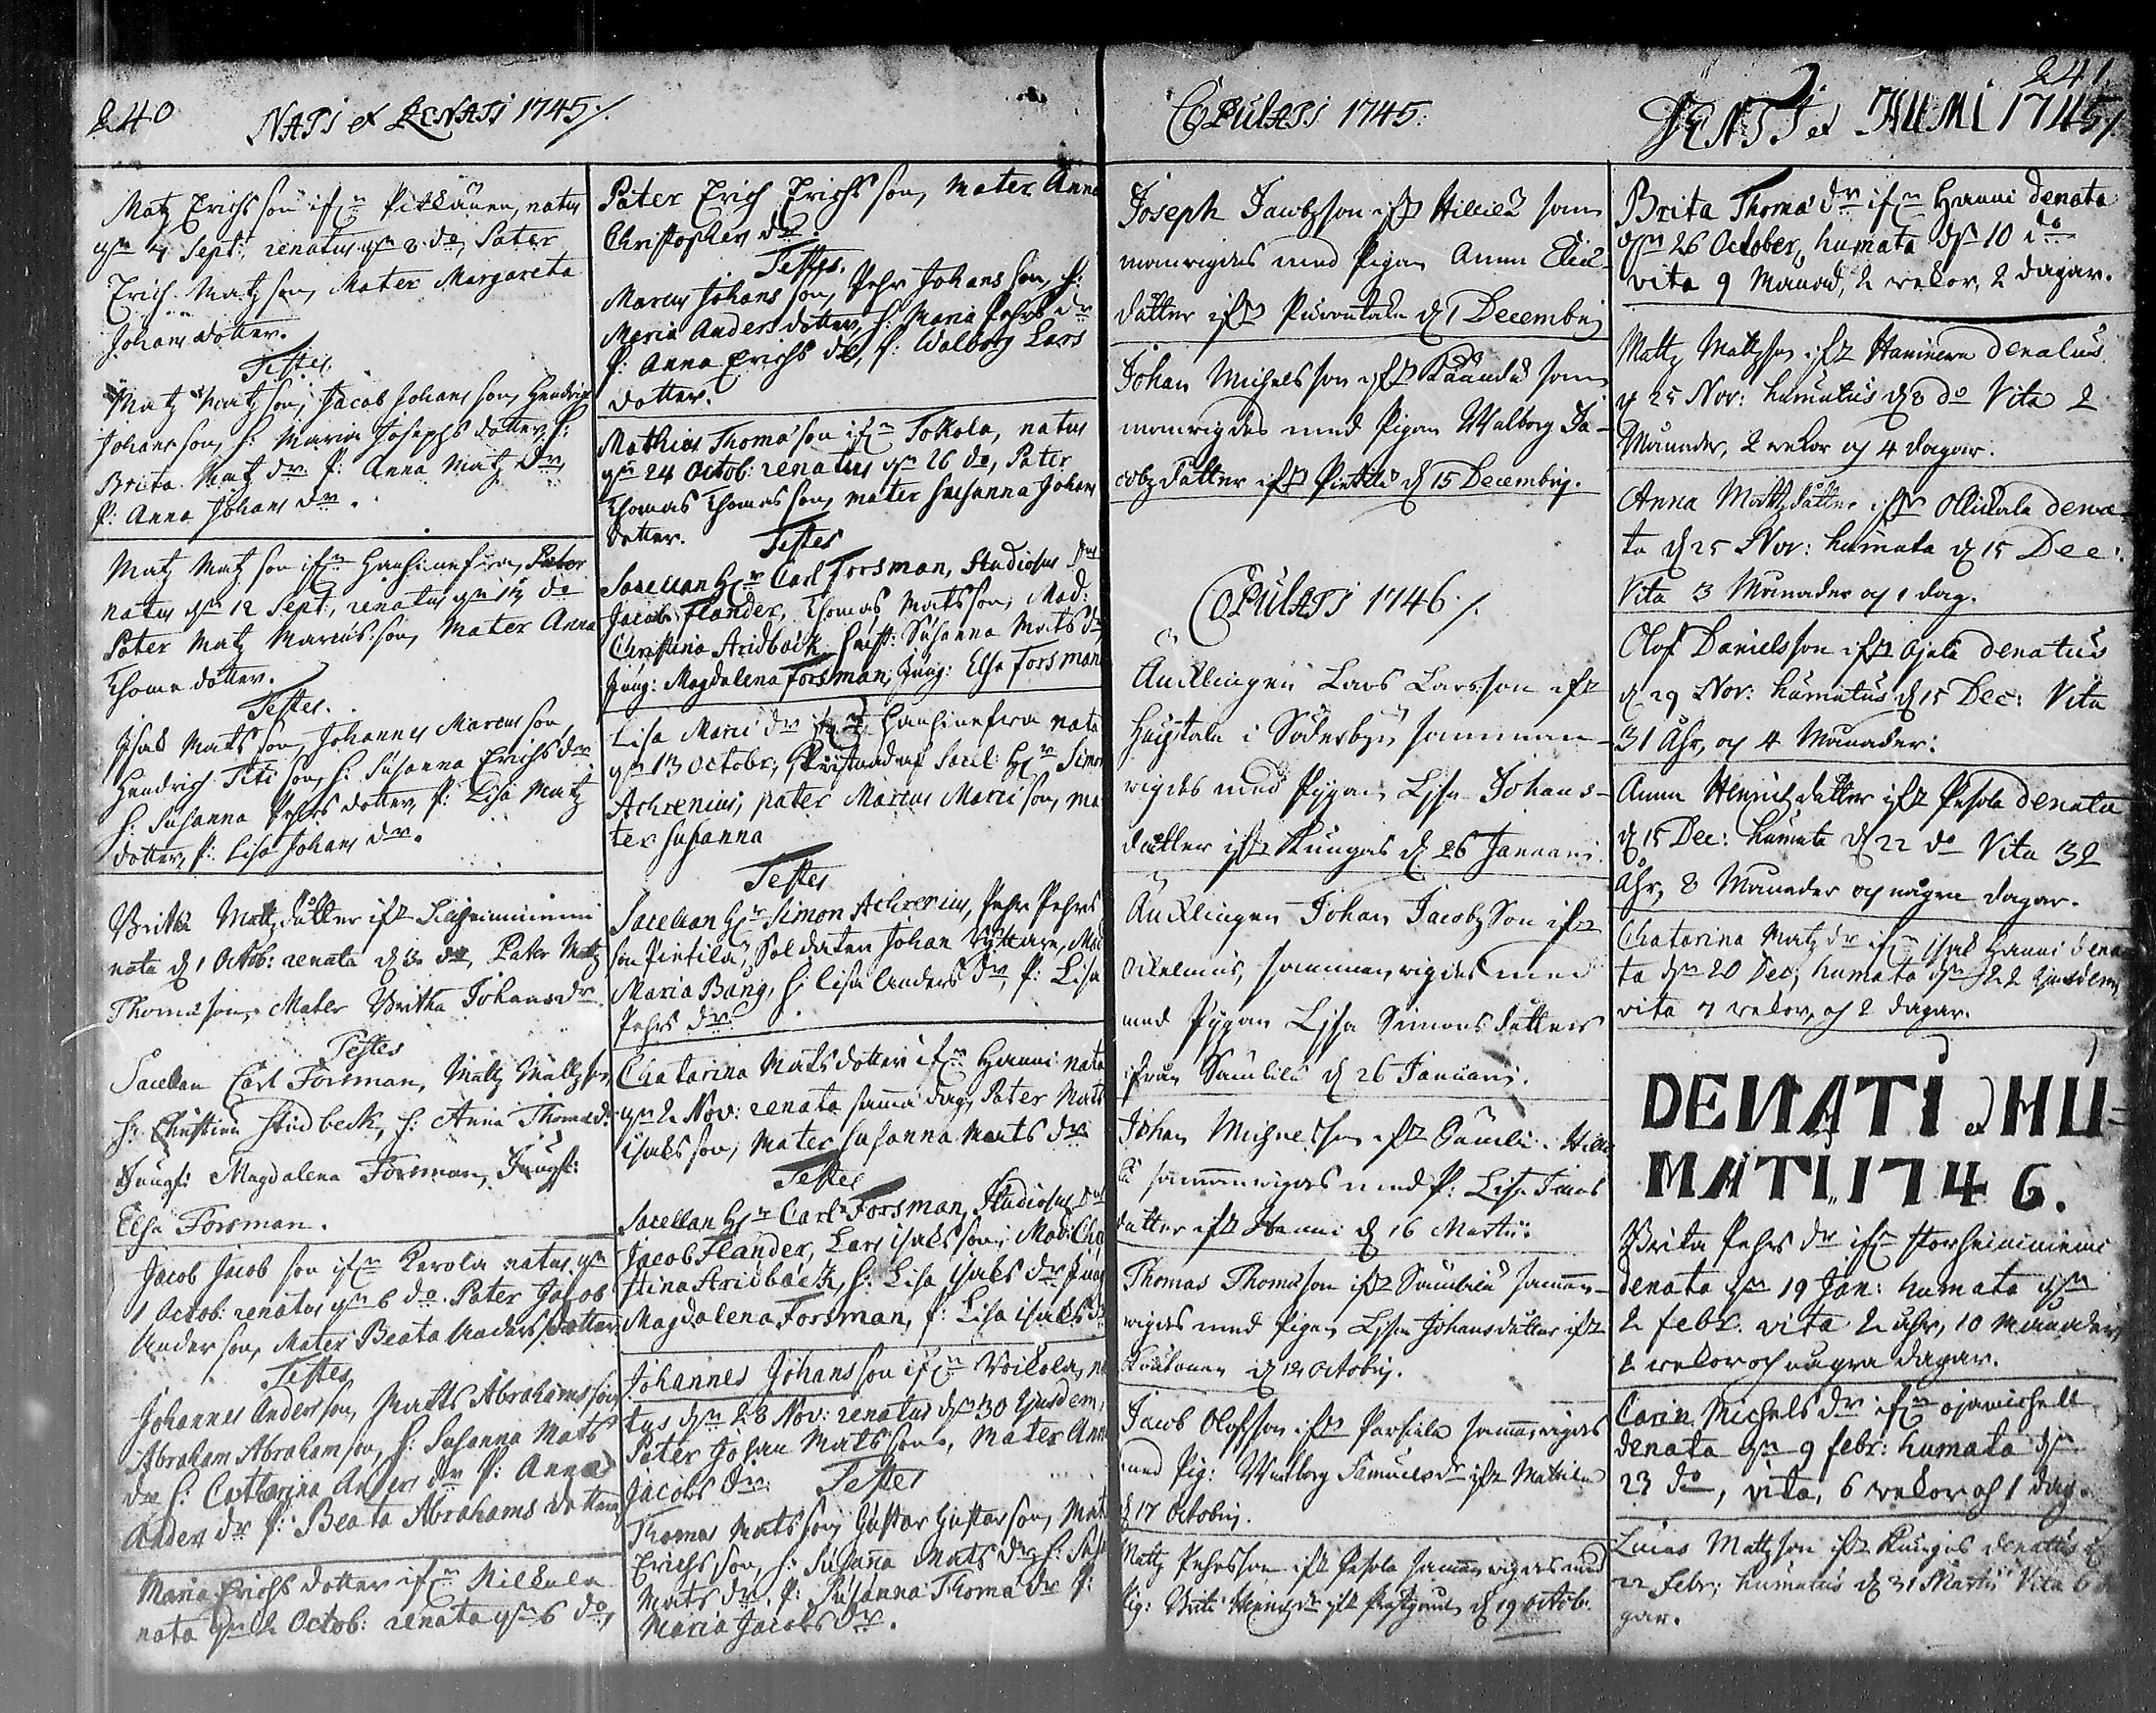 240
NATI et RENATI 1745 ./.
Matz Erichsson ifrn Pitkänen, natus
dn 4 Sept: renatus dn 8 do, Pater
Erich Matzson, Mater Margareta
Johans dotter.
Testes.
Matz Matzson, Jacob Johansson, Hendrich
Johansson, h: Maria Josephs dotter, h:
Brita Matz dr P: Anna Matz dr
P: Anna Johans dr.
Matz Matzson ifrn
natus dn 12 Sept:, renatus dn do
Pater Matz Marcusson, Mater Anna
Thome dotter.
Testes.
Isak Matsson, Johannes Marcusson,
Hendrich Titi son, h: Susanna Erichs dr
h: Susanna Pehrs dotter, P: Lisa Matz
dotter, P: Lisa Johans dr.
Britha Mattz dåtter ifr
nata d 1 Octob: renata d 3 do, Pater Mattz
Thomasson, Mater Britha Johans dr
Testes
Sacellan Carl Forsman, Mattz Mattzson
h: Christina Stridbeck, h: Anna Thomæ dr
Jungf: Magdalena Forsman, Jungf:
Elsa Forsman.
Jacob Jacobson ifrn Karola natus dn
1 Octob: renatus dn 6 do. Pater Jacob
Andersson, Mater Beata Anders dotter
Testes
Johannes Andersson, Matts Abrahamsson
Abraham Abrahamson, h: Susanna Mats
dr h: Catharina Anders dr P: Anna
Anders dr P: Beata Abrahams dotter
Maria Erichs dotter ifrn Nickula
nata dn 2 Octob: renata dn 6 do,
Pater Erich Erichsson, Mater Anna
Christophers dr.
Testes.
Marcus Johansson, Pehr Johansson, h:
Maria Anders dotter, h: Maria Pehrs dr
P: Anna Erichs dr, P: Walborg Lars
dotter.
Mathias Thomæson ifrn Tokola, natus
dn 24 Octob: renatus dn 26 do, Pater
Thomas Thomasson, mater Susanna Johans
dotter.
Testes
Sacellan Hr Carl Forsman, Studiosus Dns
Jacob Flander, Thomas Matsson, Mad:
Christina Stridbäck, hust: Susanna Mats dr
Jung: Magdalena Forsman, Jung: Elsa Forsman
Lisa Marci dr ifrn nata
dn 13 Octobr; Sacel: Hr Simon
Achrenius, pater Marcus Marci son, ma
ter Susanna
Testes
Sacellan Hr Simon Achrenius, Pehr Pehrs
son Pietilä, Soldaten Johan Ryttare, Mad
Maria Bang, h: Lisa Anders dr, P: Lisa
Pehrs dr.
Chatarina Mats dotter ifrn Hanni nata
dn 2 Nov: renata samma dag, Pater Matts
Isaksson, Mater Susanna Mats dr
Testes
Sacellan Hr Carl Forsman, Studiosus Dns
Jacob Flander, Lars Isaksson, Mad: Chri
stina Stridbäck, h: Lisa Isaks dr Jung
Magdalena Forsman, P: Lisa Isaks dr
Johannes Johansson ifrn Woikola, na
tus dn 28 Nov: renatus dn 30 Ejusdem,
Pater Johan Matsson, Mater Anna
Jacobs dr. Testes
Thomas Matsson, Gustav Gustavson, Mats
Erichsson, h: Susanna Mats dr, h: Susa
Mats dr, P: Susanna Thomæ dr P:
Maria Jacobs dr.
COPULATI 1745:
Joseph Jacobzson ifr Hillilä sam
manvigdes med Pigan Anna
dåtter ifr d 1 Decembrij
Johan Michelsson ifr sam
manvigdes med Pigan Walborg Ja-
cobz dåtter ifr Pietilä d 15 Decembrij.
COPULATI 1746 ./.
Änklingen Lars Larsson ifr
i Söderby, samman-
vigdes med Pygan Lisa Johans-
dåtter ifr Kungas d 26 Januari.
Änklingen Johan Jacobz Son ifr
sammanvigdes med
med Pygan Lisa Simons dåtter
ifrån d 26 Januari.
Johan Michelsson ifr
sammanvigdes med P: Lisa
dåtter ifr Hanni d 16 Martii.
Thomas Thomæson ifr samman-
vigdes med Pigan Lisa Johans dåtter ifr
d 12 Octobrij.
Jacob Olofsson ifr Parsiala sammanvigdes
med Pig: Walborg Samuels dr ifr Matila
d 17 Octobrij.
Mattz Pehrsson ifr Pesola sammanvigdes med
Pig: Brita Henrichz dr ifr d 19 Octob:
241.
DENATI et HUMI 1745 ./
Brita Thomæ dr ifrn Hanni denata
dn 26 October, humata dn 10 do
vita 9 Månad, 2 wekor, 2 dagar.
Mattz Mattzson ifr denatus
d 25 Nov: humatus d 8 do Vita 2
Månader, 2 wekor och 4 dagar.
Anna Mattz dåtter ifr Ollikala dena-
ta d 25 Nov: humata d 15 Dec:
Vita 3 Månader och 1 dag.
Olof Danielsson ifr denatus
d 29 Nov: humatus d 15 Dec: Vita
31 Åhr, och 4 Månader:
Anna Henrichz dåtter ifr Pesola denata
d 15 Dec: humata d 22 do Vita 32
Åhr, 8 Månader och någre dagar.
Chatarina Matz dr ifrn Isak Hanni dena
ta dn 20 Dec; humata dn 22 Ejusdem,
vita 7 wekor, och 2 dagar.
DENATI et HU=
MATI 1746.
Brita Pehrs dr ifrn
denata dn 19 Jan: humata dn
2 febr. vita 2 åhr, 10 månader,
2 wekor och några dagar.
Carin Michels dr ifrn
denata dn 9 febr: humata dn
23 do, vita, 6 wekor och 1 dag.
Lucas Mattzson ifr Kungas denatus d
22 Febr; humatus d 31 Martii Vita 6
gar.